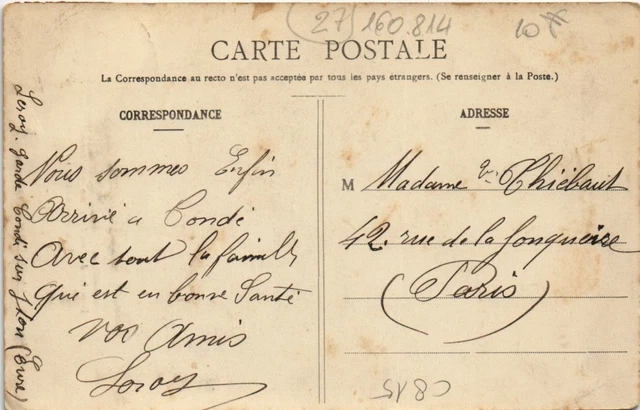 (27) 160.814
10
CARTE POSTALE
La Correspondance au recto n'est pas acceptée par tous les pays étrangers. (Se renseigner à la Poste.)
CORRESPONDANCE
Nous sommes Enfin
Arrivé a Condé
Avec tout la famille
qui est en bonne Santé
vos Amis
Leroy
Leroy. garde Condé sur Iton (Eure)
ADRESSE
M Madame Vve Thiébaut
42. rue de la Jonquière
(Paris)
C815